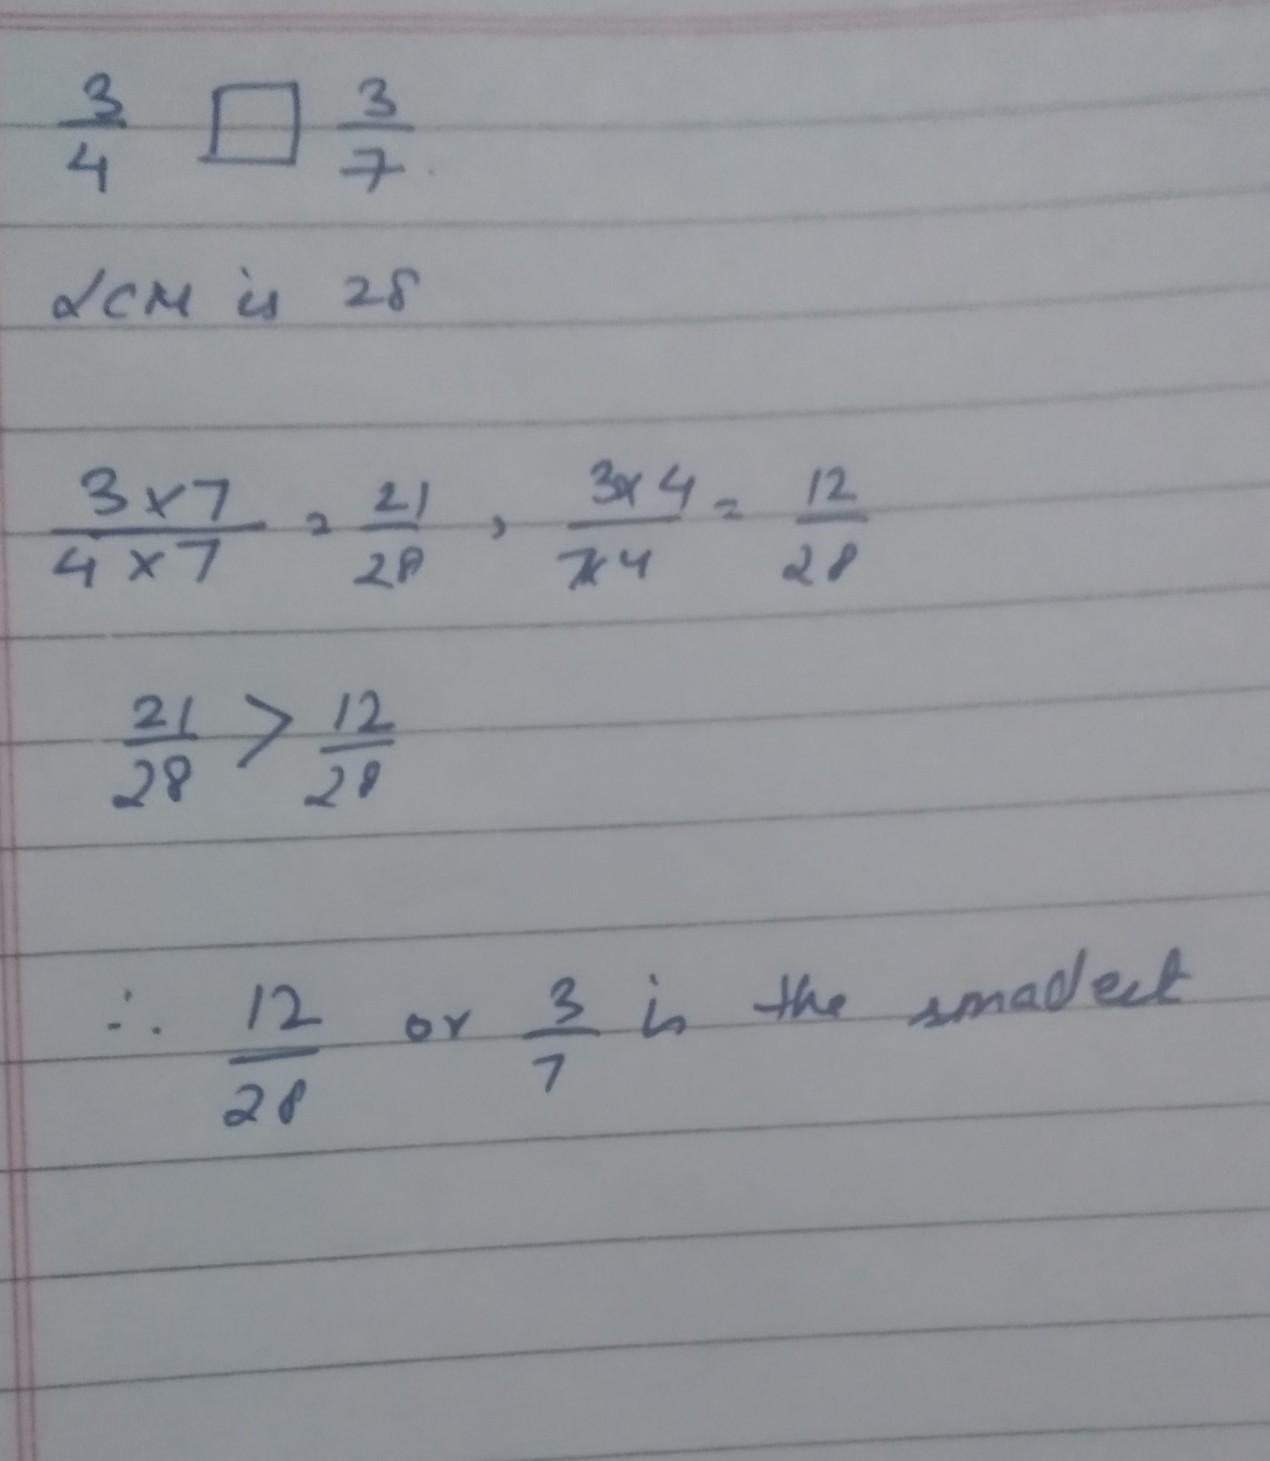 3/4 □ 3/7
LCM is 28
3x7/4x7 = 21/28 , 3x4/7x4 = 12/28
21/28 > 12/28
∴ 12/28 or 3/7 is the smallest